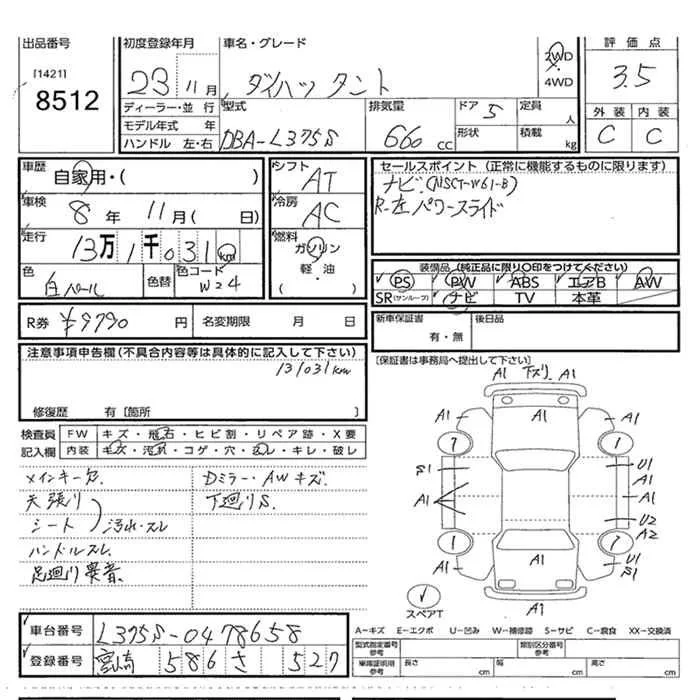 出品番号 初度登録年月 車名・グレード 2WD 評価点
[1421] 23年 11月 ダイハツ タント 4WD 3.5
8512
ディーラー・並行 型式 排気量 ドア 5 定員 人 外装 内装
モデル年式 年 DBA-L375S 660cc 形状 積載 kg C C
ハンドル 左・右
車歴 自家用・( ) シフト AT セールスポイント (正常に機能するものに限ります)
車検 8年 11月( 日) 冷房 AC ナビ(NSCT-W61-B)
走行 13万1千031km 燃料 ガソリン R-左パワースライド
軽・油
( )
色 白パール 色替 色コード W24
装備品 (純正品に限り〇印をつけてください)
PS PW ABS エアB AW
SR(サンルーフ) ナビ TV 本革
R券 ¥9790円 名変期限 月 日 新車保証書 後日品
有・無
注意事項申告欄(不具合内容等は具体的に記入して下さい) [保証書は事務局へ提出して下さい]
131031km
修復歴 有〔箇所 〕
検査員 FW キズ・飛石・ヒビ割・リペア跡・X要
記入欄 内装 キズ・汚れ・コゲ・穴・スレ・キレ・破レ
メインキー欠 Dミラー・AWキズ.
天張り 下廻りS.
シート 汚れ・スレ
ハンドルスレ.
足廻り異音.
A1 下ズリ A1
A1 A1 A1
S1 U1
A1 A1
A1
U2
A2
A1 A1 U1
S1
A1
スペアT
車台番号 L375S-0478658
登録番号 宮崎 586 さ 527
A-キズ E-エクボ U-凹み W-補修跡 S-サビ C-腐食 XX-交換済
型式指定番号 参考 類別区分番号 参考
車庫証明用 参考 長さ cm 幅 cm 高さ cm